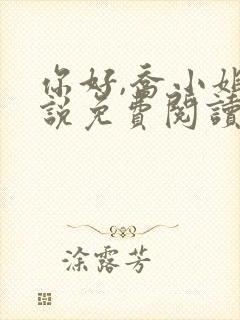 你好,喬小姐
說免費閱讀
涂露芳